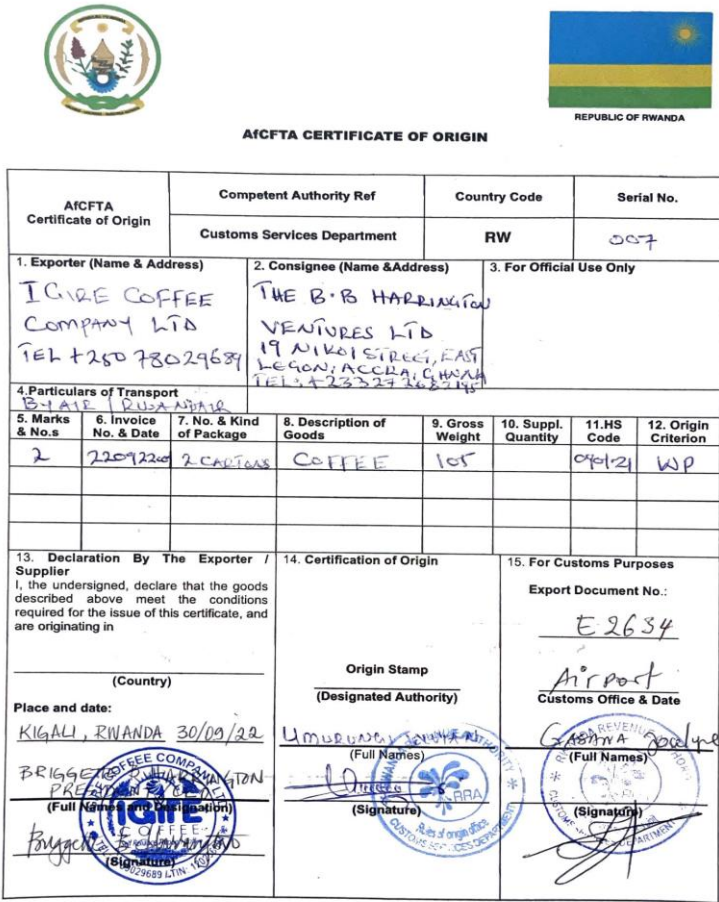 REPUBLIC OF RWANDA
AfCFTA CERTIFICATE OF ORIGIN
AfCFTA
Certificate of Origin
Competent Authority Ref
Country Code
Serial No.
Customs Services Department
RW
007
1. Exporter (Name & Address)
IGIRE COFFEE
COMPANY LTD
TEL +250 78029689
2. Consignee (Name &Address)
THE B.B HARRINGTON
VENTURES LTD
19 NIKOI STREET, EAST
LEGON, ACCRA, GHANA
TEL: +233
3. For Official Use Only
4.Particulars of Transport
BY AIR / RWANDAIR
5. Marks & No.s
6. Invoice No. & Date
7. No. & Kind of Package
8. Description of Goods
9. Gross Weight
10. Suppl. Quantity
11.HS Code
12. Origin Criterion
2
2 CARTONS
COFFEE
105
WP
13. Declaration By The Exporter / Supplier
I, the undersigned, declare that the goods
described above meet the conditions
required for the issue of this certificate, and
are originating in
(Country)
Place and date:
KIGALI, RWANDA 30/09/22
BRIGGETTE HARRINGTON
(Full Names and Designation)
(Signature)
14. Certification of Origin
Origin Stamp
(Designated Authority)
(Full Names)
(Signature)
RRA
Rules of origin office
CUSTOMS SERVICES DEPARTMENT
15. For Customs Purposes
Export Document No.:
E 2634
Airport
Customs Office & Date
GASANA Jocelyne
(Full Names)
(Signature)
COFFEE COMPANY LTD
IGIRE
COFFEE